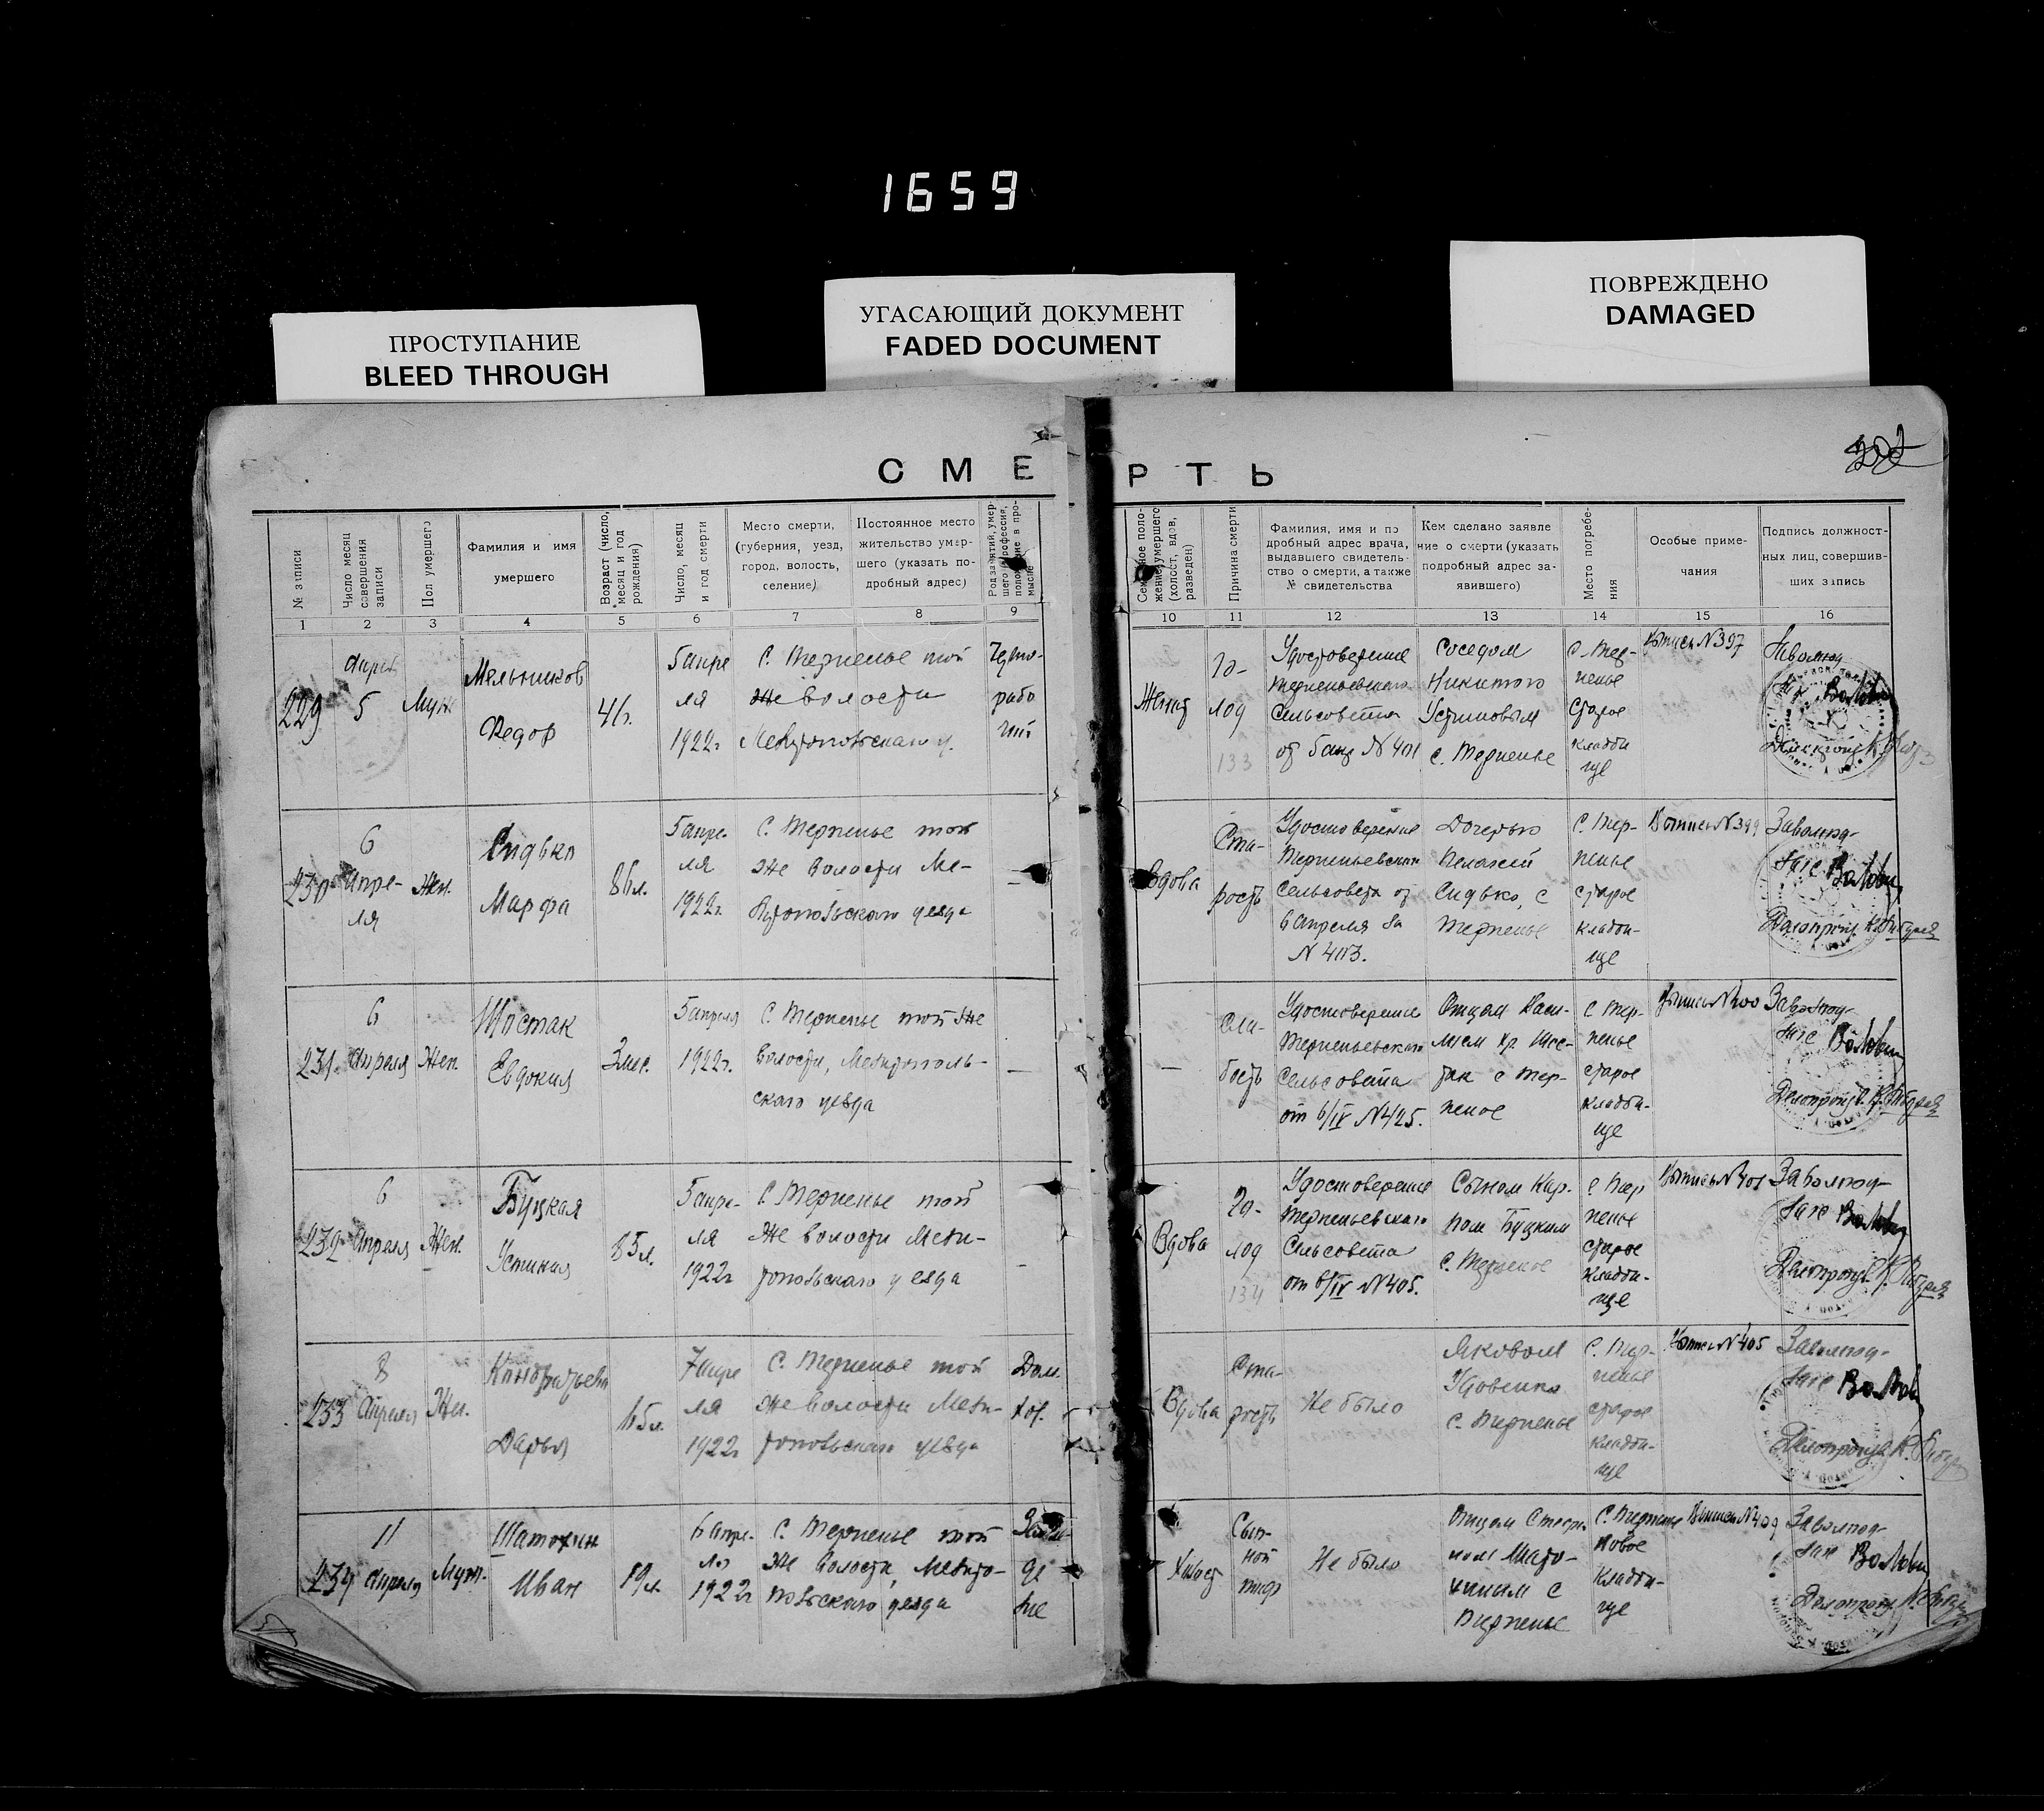 1659
ПРОСТУПАНИЕ
BLEED THROUGH
УГАСАЮЩИЙ ДОКУМЕНТ
FADED DOCUMENT
ПОВРЕЖДЕНО
DAMAGED
СМЕРТЬ
№ записи
Число месяц совершения записи
Пол умершего
Фамилия и имя
умершего
Возраст (число, месяц и год рождения)
Число, месяц и год смерти
Место смерти,
(губерния, уезд,
город, волость,
селение)
Постоянное место
жительство умер-
шего (указать по-
дробный адрес)
Причина смерти
Фамилия, имя и по
дробный адрес врача,
выдавшего свидетель-
ство о смерти, а также
№ свидетельства
Кем сделано заявле
ние о смерти (указать
подробный адрес за-
явившего)
Место погребе-
ния
Особые приме-
чания
Подпись должност-
ных лиц, совершив-
ших запись
1 2 3 4 5 6 7 8 9 10 11 12 13 14 15 16
229
5
Муж
Мельников
Федор
5 апре
ля
1922г
С. Терпенье той
же волости
Женат
Го-
лод
133
Удостоверение
Терпеньевского
Сельсовета
Соседом
Никитою
Устиновым
с. Терпенье
С. Тер-
пенье
старое
кладби
ще
Выпись N 397
230
6
Апре-
ля
Жен.
Сидько
Марфа
86л.
5 апре-
ля
1922г.
С. Терпенье той
же волости Ме-
литопольского уезда
Вдова
Ста-
рость
Удостоверение
Терпеньевского
Сельсовета от
6 Апреля за
N 403.
Дочерью
Пелагеей
Сидько, с
Терпенье
С. Тер-
пенье
старое
кладби-
ще
Выпись N 399
Заволпод-
231
6
Апреля
Жен.
Шостак
Евдокия
3 мес.
5 апреля
1922г.
С. Терпенье той же
волости, Мелитополь-
ского уезда
Сла-
бость
Удостоверение
Терпеньевского
Сельсовета
от 6/IV N 425.
Отцом Васи-
лием
с Тер-
пенье
С Тер-
пенье
старое
кладби-
ще
Выпись N 400
Заволпод-
232
6
Апреля
Жен.
Буцкая
Устиния
85л.
5 апре-
ля
1922г
С. Терпенье той
же волости Мели-
топольского уезда
Вдова
Го-
лод
134
Удостоверение
Терпеньевского
Сельсовета
от 6/IV N 405.
Сыном Кар-
пом Буцким
с. Терпенье
С Тер
пенье
старое
кладби-
ще
Выпись N 401
Заволпод-
233
8
Апреля
Жен.
Кондратьева
Дарья
65л.
7 апре
ля
1922г
С. Терпенье той
же волости Мели-
топольского уезда
Дом.
хоз.
Вдова
Ста-
рость
Не было
Яковом
Удовенко
с. Терпенье
С. Тер-
пенье
старое
кладби-
ще
Выпись N 405
Заволпод-
234
11
Апреля
Муж.
Шатохин
Иван
19л.
6 апре-
ля
1922г
С. Терпенье той
же волости, Мелито-
польского уезда
Холост
Сып-
ной
тиф
Не было
Отцом
Шато-
хиным с
Терпенье
С. Терпенье
Новое
кладби-
ще
Выпись N 409
Заволпод-